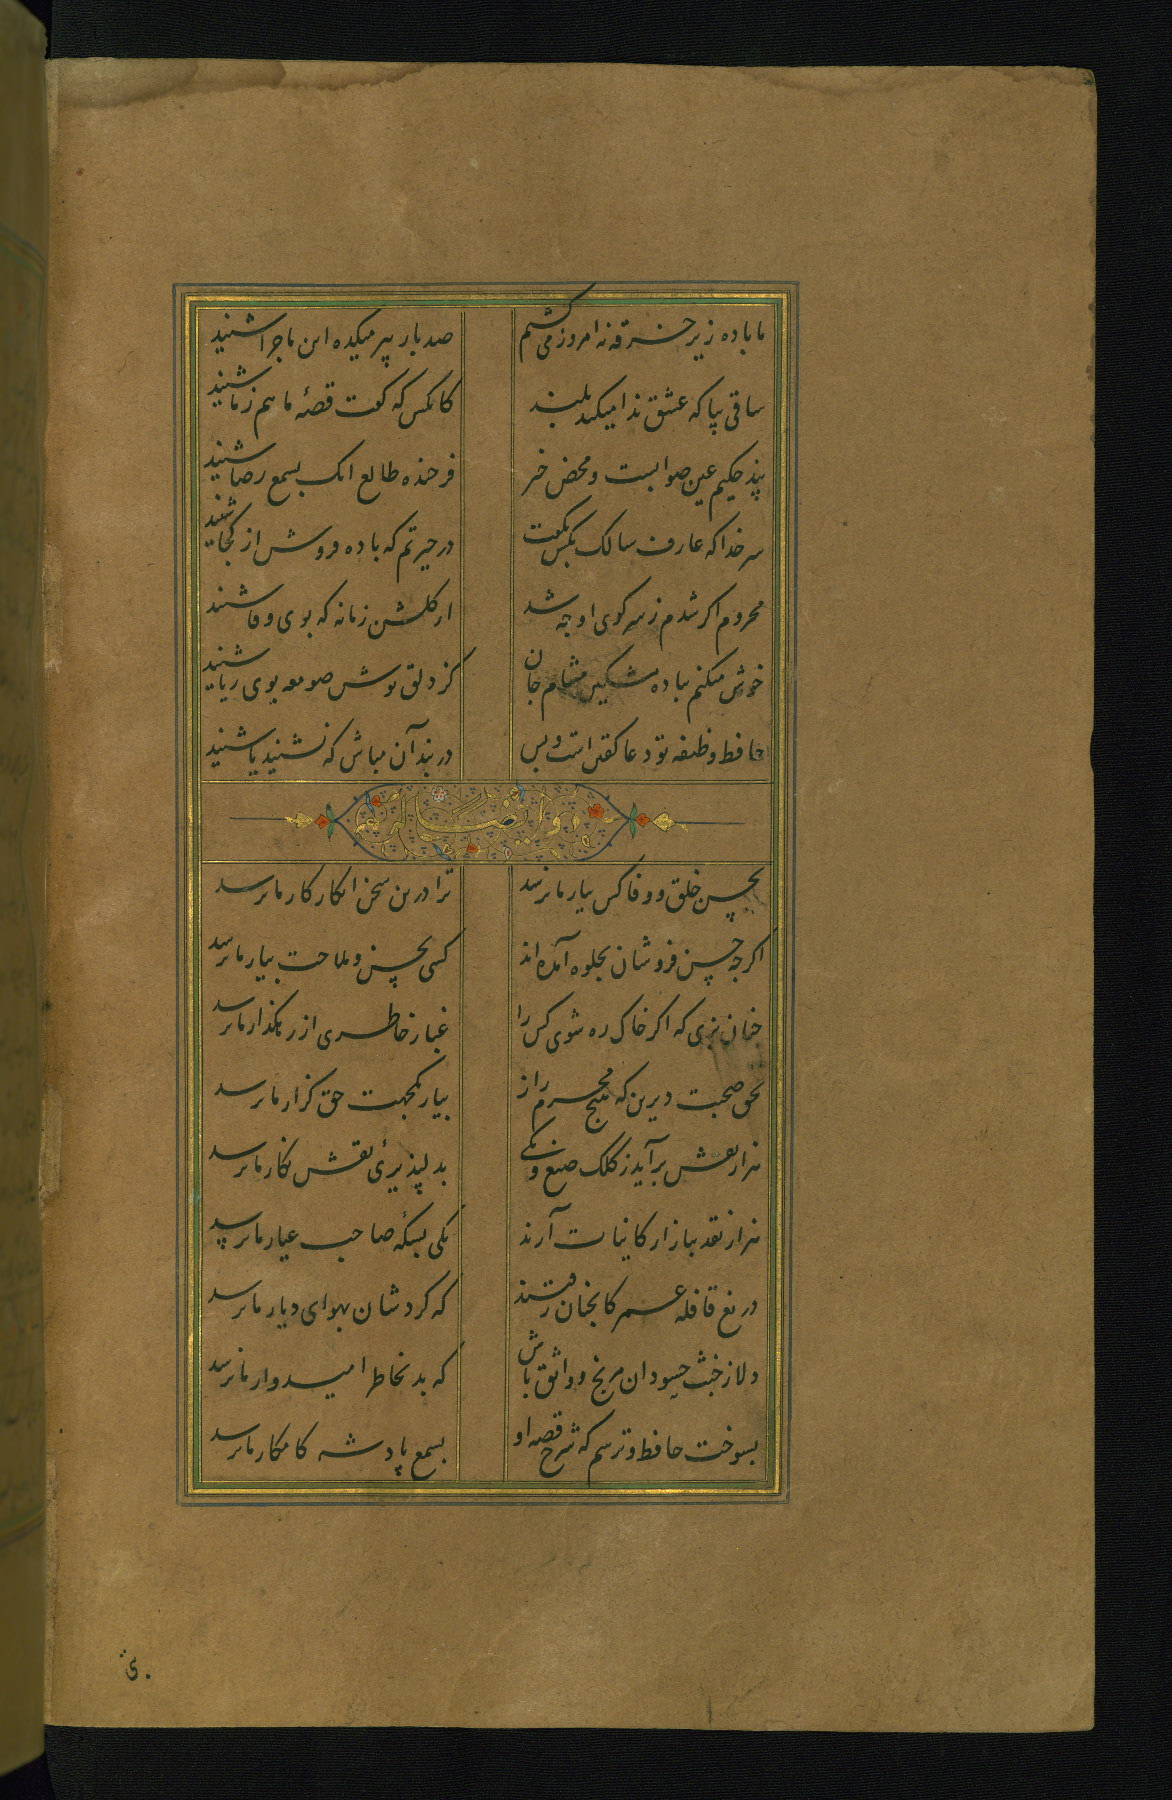 ما باده زیر خرقه نه امروز می کشیم صد بار پیر میکده این ماجرا شنید
ساقی بیا که عشق ندا میکند بلند کانکس که گفت قصهٔ ما هم ز ما شنید
پند حکیم عین صوابست و محض خیر فرخنده طالع انک بسمع رضا شنید
سر خدا که عارف سالک بکس نگفت در حیرتم که باده فروش از کجا شنید
محروم اگر شدم ز سر کوی او چه شد از گلشن زمانه که بوی وفا شنید
خوش میکنم بباده مشکین مشام جان کز دلق پوش صومعه بوی ریا شنید
حافظ وظیفه تو دعا گفتن است و بس در بند آن مباش که نشنید یا شنید
وله ایضا
بحسن خلق و وفا کس بیار ما نرسد ترا درین سخن انکار کار ما نرسد
اگر چه حسن فروشان بجلوه آمده اند کسی بحسن و ملاحت بیار ما نرسد
چنان بزی که اگر خاک ره شوی کس را غبار خاطری از رهگذار ما نرسد
بحق صحبت دیرین که هیچ محرم راز بیار یکجهت حق گزار ما نرسد
هزار نقش برآید ز کلک صنع و یکی بدلپذیریٔ نقش نگار ما نرسد
هزار نقد ببازار کاینات آرند یکی بسکهٔ صاحب عیار ما نرسد
دریغ قافله عمر کانچنان رفتند که گردشان بهوای دیار ما نرسد
دلا ز خبث حسودان مرنج و واثق باش که بد بخاطر امیدوار ما نرسد
بسوخت حافظ و ترسم که شرح قصه او بسمع پادشه کامکار ما نرسد